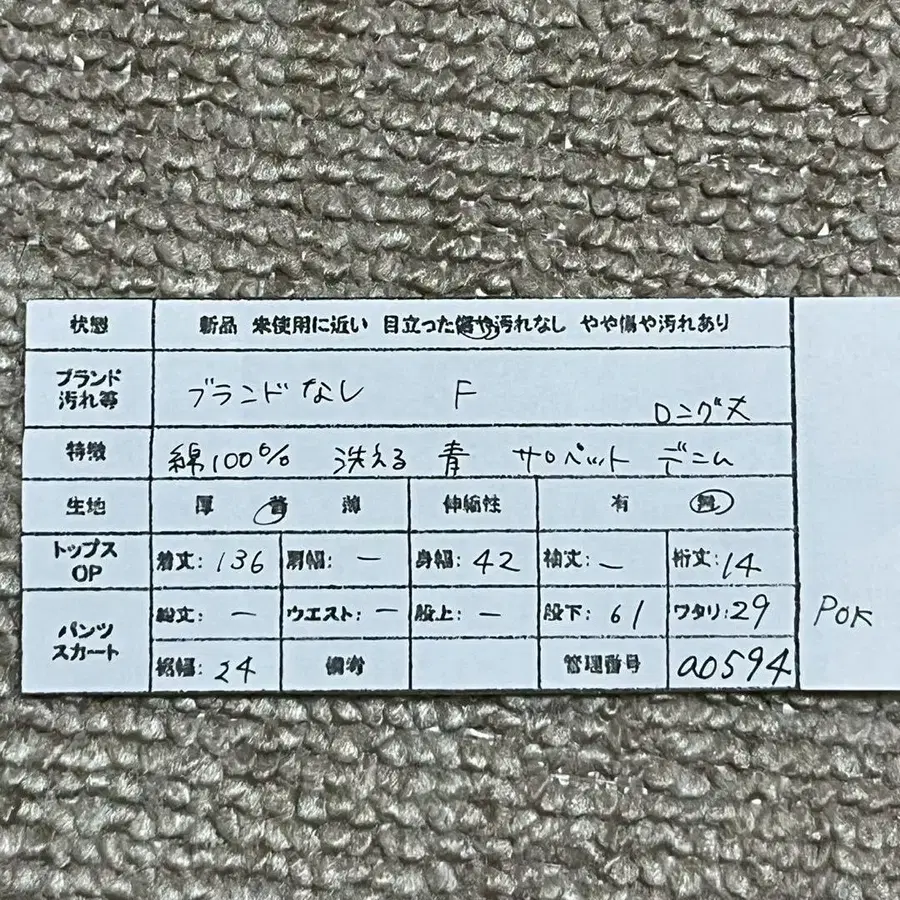 状態 新品 未使用に近い 目立った傷や汚れなし やや傷や汚れあり
ブランド 汚れ等 ブランドなし F ロング丈
特徴 綿100% 洗える 青 サロペット デニム
生地 厚 普 薄 伸縮性 有 無
トップス OP 着丈: 136 肩幅: - 身幅: 42 袖丈: - 裄丈: 14
パンツ スカート 総丈: - ウエスト: - 股上: - 股下: 61 ワタリ: 29
裾幅: 24 備考 管理番号 a0594
POK